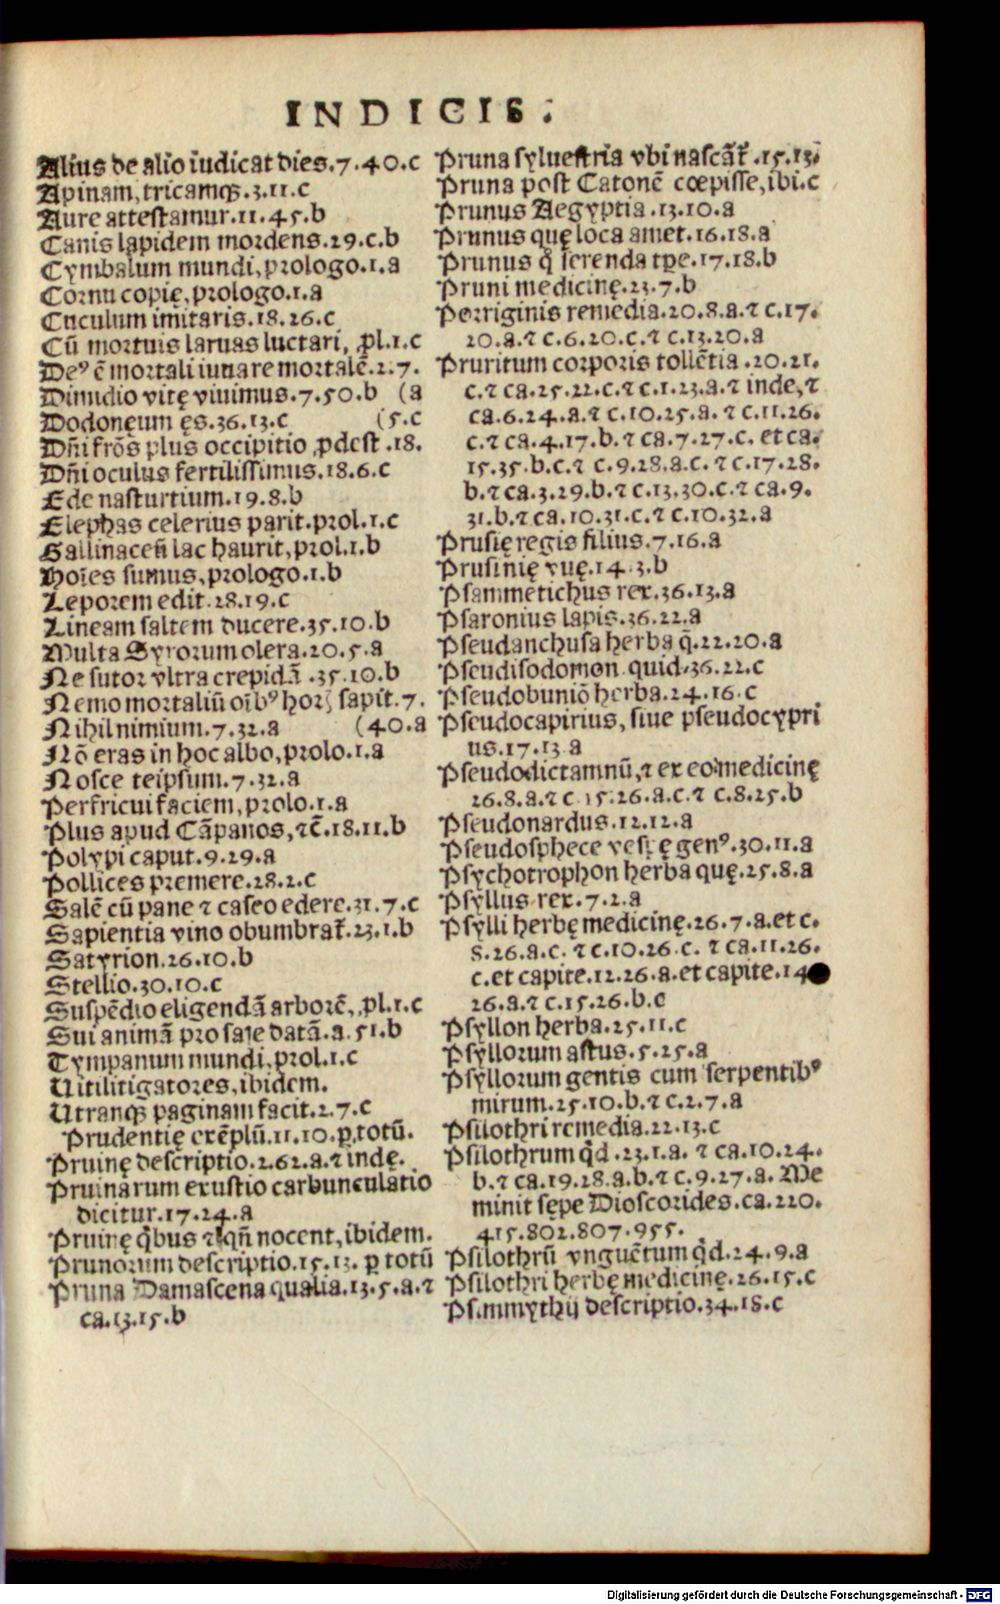 INDICIS.
Alius de alio iudicat dies.7.40.c
Apinam, tricamqꝫ.3.11.c
Aure attestamur.11.45.b
Canis lapidem mordens.29.c.b
Cymbalum mundi, prologo.1.a
Cornu copię, prologo.1.a
Cuculum imitaris.18.26.c
Cū mortuis laruas luctari, ꝓl.1.c
Deꝰ ē mortali iuuare mortalē.2.7.
Dimidio vitę viuimus.7.50.b (a
Dodonęum ęs.36.13.c (5.c
Dñi frōs plus occipitio ꝓdest .18.
Dñi oculus fertilissimus.18.6.c
Ede nasturtium.19.8.b
Elephas celerius parit.prol.1.c
Gallinaceū lac haurit, prol.1.b
Hoīes sumus, prologo.1.b
Leporem edit.28.19.c
Lineam saltem ducere.35.10.b
Multa Syrorum olera.20.5.a
Ne sutor vltra crepidā .35.10.b
Nemo mortaliū oībꝰ horꝭ sapit.7.
Nihil nimium.7.32.a (40.a
Nō eras in hoc albo, prolo.1.a
Nosce teipsum.7.32.a
Perfricui faciem, prolo.1.a
Plus apud Cāpanos, ⁊c̄.18.11.b
Polypi caput.9.29.a
Pollices premere.28.2.c
Salē cū pane ⁊ caseo edere.31.7.c
Sapientia vino obumbrat̄.23.1.b
Satyrion.26.10.b
Stellio.30.10.c
Suspēdio eligendā arborē, ꝓl.1.c
Sui animā pro sale datā.a.51.b
Tympanum mundi, prol.1.c
Uitilitigatores, ibidem.
Utranqꝫ paginam facit.2.7.c
Prudentię exēplū.11.10.ꝑ totū.
Pruinę descriptio.2.62.a.⁊ indę.
Pruinarum exustio carbunculatio
dicitur.17.24.a
Pruinę qͥbus ⁊ qñ nocent, ibidem.
Prunorum descriptio.15.13. ꝑ totū
Pruna Damascena qualia.13.5.a.⁊
ca.13.15.b
Pruna syluestria vbi nascāt̄ .15.13.
Pruna post Catonē cœpisse, ibi.c
Prunus Aegyptia .13.10.a
Prunus quę loca amet.16.18.a
Prunus q̄ serenda tꝑe.17.18.b
Pruni medicinę.23.7.b
Porriginis remedia.20.8.a.⁊ c.17.
20.a.⁊ c.6.20.c.⁊ c.13.20.a
Pruritum corporis tollētia .20.21.
c.⁊ ca.25.22.c.⁊ c.1.23.a.⁊ inde, ⁊
ca.6.24.a.⁊ c.10.25.a.⁊ c.11.26.
c.⁊ ca.4.17.b.⁊ ca.7.27.c. et ca.
15.35.b.c.⁊ c.9.28.a.c.⁊ c.17.28.
b.⁊ ca.3.29.b.⁊ c.13.30.c.⁊ ca.9.
31.b.⁊ ca.10.31.c.⁊ c.10.32.a
Prusię regis filius.7.16.a
Prusinię vuę.14.3.b
Psammetichus rex.36.13.a
Psaronius lapis.36.22.a
Pseudanchusa herba q̄.22.20.a
Pseudisodomon quid.36.22.c
Pseudobuniō herba.24.16.c
Pseudocapirius, siue pseudocypri
us.17.13.a
Pseudodictamnū, ⁊ ex eo medicinę
26.8.a.⁊ c.15.26.a.c.⁊ c.8.25.b
Pseudonardus.12.12.a
Pseudosphece vespę genꝰ.30.11.a
Psychotrophon herba quę.25.8.a
Psyllus rex.7.2.a
Psylli herbę medicinę.26.7.a.et c.
8.26.a.c. ⁊ c.10.26.c. ⁊ ca.11.26.
c.et capite.12.26.a.et capite.14
26.a.⁊ c.15.26.b.c
Psyllon herba.25.11.c
Psyllorum astus.5.25.a
Psyllorum gentis cum serpentibꝰ
mirum.25.10.b.⁊ c.2.7.a
Psilothri remedia.22.13.c
Psilothrum qͥd .23.1.a. ⁊ ca.10.24.
b.⁊ ca.19.28.a.b.⁊ c.9.27.a. Me
minit sępe Dioscorides.ca.220.
415.802.807.955.
Psilothrū vnguētum qͥd.24.9.a
Psilothri herbę medicinę.26.15.c
Psimmythij descriptio.34.18.c
Digitalisierung gefördert durch die Deutsche Forschungsgemeinschaft - DFG